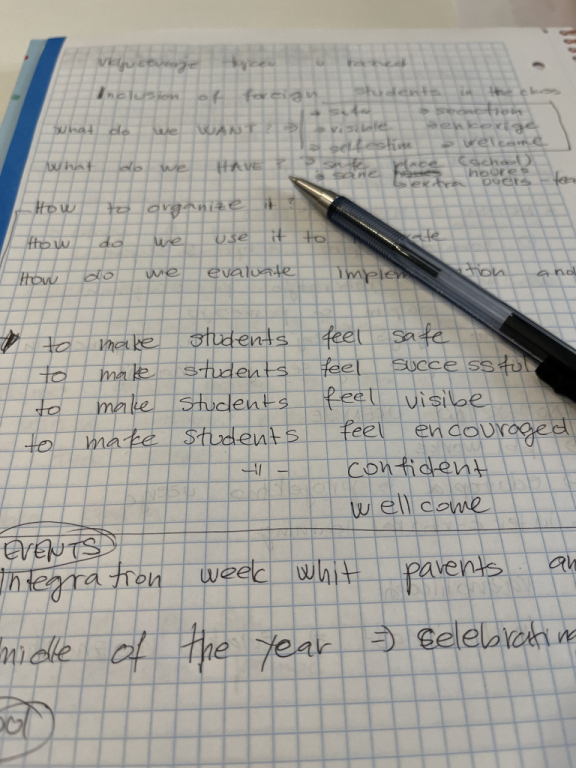 Inclusion of foreign students in the class
What do we WANT? ⇒ → safe → seanction
→ visible → enkorige
→ selfestim → wellcome
What do we HAVE? → safe place (school)
→ same houres
extra
How to organize it?
How do we use it to
How do we evaluate implementation and
to make students feel safe
to make students feel successful
to make students feel visibe
to make students feel encouraged
-11- confident
wellcome
EVENTS
integration week whit parents an
midle of the year ⇒ selebrating